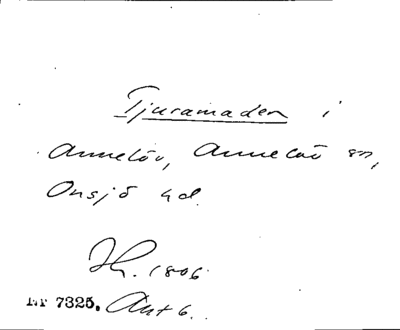 Tjuramaden i
Annelöv, Annelöv sn,
Onsjö hd.
1806.
7325. Akt 6.